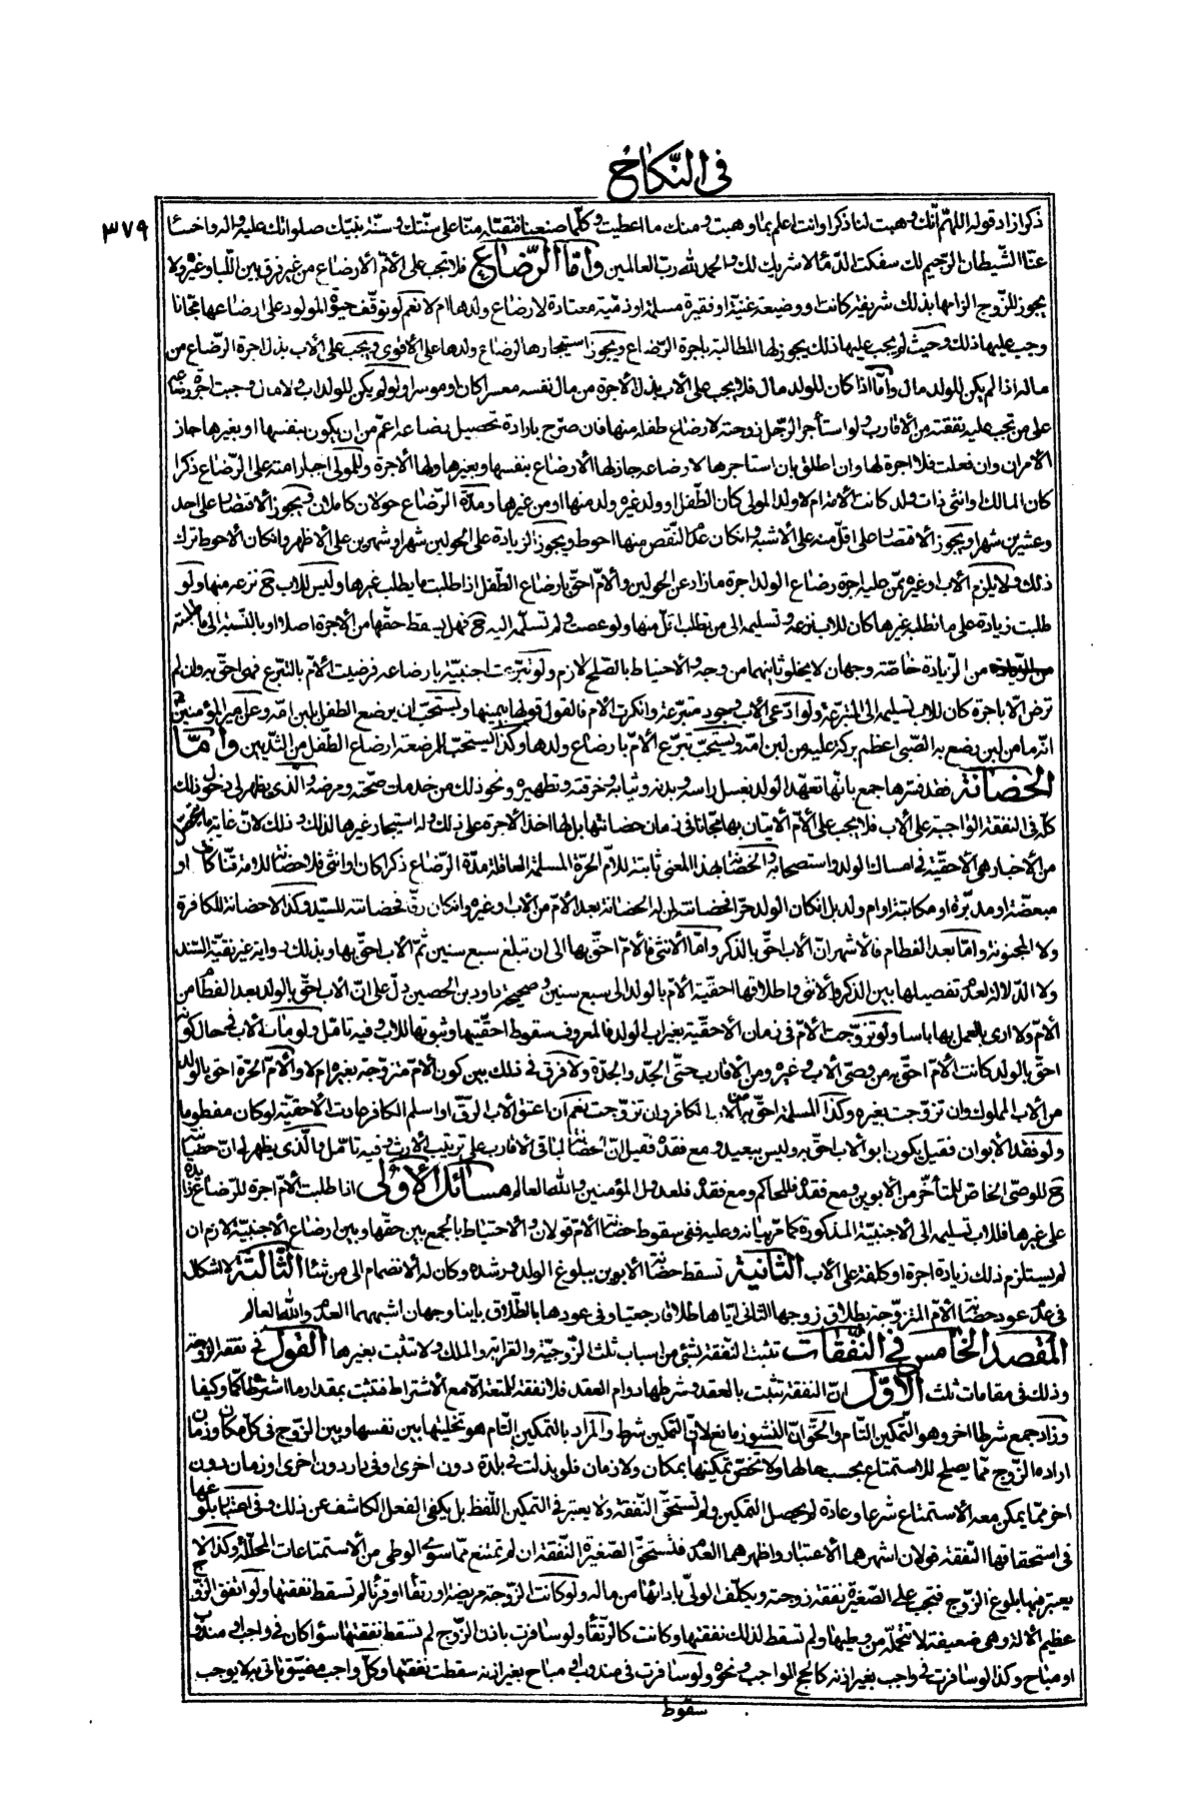 في النكاح
٣٧٩
ذكرا زاد قوله اللهم انك وهبت لنا ذكرا وانت اعلم بما وهبت ومنك ما اعطيت وكلما صنعنا فتقبله منا على سنتك وسنة نبيك صلواتك عليه واله واخسا
عنا الشيطان الرجيم لك سفكت الدماء لا شريك لك والحمد لله رب العالمين واما الرضاع فلا تجب على الام الارضاع من غير فرق بين اللبا وغيره ولا
يجوز للزوج الزامها بذلك شريفة كانت او وضيعة غنية او فقيرة مسلمة او ذمية معتادة لارضاع ولدها ام لا نعم لو توقف حيوة المولود على ارضاعها مجانا
وجب عليها ذلك وحيث لم يجب عليها ذلك يجوز لها المطالبة باجرة الرضاع ويجوز استيجارها لرضاع ولدها على الاقوى ويجب على الاب بذل اجرة الرضاع من
ماله اذا لم يكن للولد مال واما اذا كان للولد مال فلا يجب على الاب بذل الاجرة من مال نفسه معسرا كان او موسرا ولو لم يكن للولد اب ولا مال وجبت اجرة رضاعه
على من تجب عليه نفقته من الاقارب ولو استأجر الرجل زوجته لارضاع طفله منها فان صرح بارادة تحصيل رضاعه اعم من ان يكون بنفسها او بغيرها جاز
الامران وان فعلت فلا اجرة لها وان اطلق بان استاجرها لارضاعه جاز لها الارضاع بنفسها وبغيرها ولها الاجرة وللمولى اجبار امته على الرضاع ذكرا
كان المالك او انثى ذات ولد كانت الامة ام لا ولد المولى كان الطفل او ولد غيره ولد منها او من غيرها ومدة الرضاع حولان كاملان ويجوز الاقتصار على احد
وعشرين شهرا ويجوز الاقتصار على اقل منه على الاشبه وان كان عدم النقص منها احوط ويجوز الزيادة على الحولين شهرا وشهرين على الاظهر وان كان الاحوط ترك
ذلك ولا يلزم الاب او غيره ممن عليه اجرة رضاع الولد اجرة ما زاد عن الحولين والام احق بارضاع الطفل اذا طلبت ما يطلب غيرها وليس للاب ح نزعه منها ولو
طلبت زيادة على ما تطلبه غيرها كان للاب نزعه وتسليمه الى من تطلب اقل منها ولو عصت ولم تسلمه اليه ح فهل يسقط حقها من الاجرة اصلا او بالنسبة الى ما طلبته
من الزيادة خاصة وجهان لا يخلو ثانيهما من وجه والاحتياط بالصلح لازم ولو تبرعت اجنبية بارضاعه فرضيت الام بالتبرع فهى احق به وان لم
ترض الا باجرة كان للاب تسليمه الى المتبرعة ولو ادعى الاب وجود متبرعة وانكرت الام فالقول قولها بيمينها ويستحب ان يرضع الطفل بلبن امه وعن امير المؤمنين ع
انه ما من لبن رضع به الصبى اعظم بركة عليه من لبن امه ويستحب تبرع الام بارضاع ولدها وكذا يستحب للمرضعة ارضاع الطفل من الثديين واما
الحضانة فقد فسرها جمع بانها تعهد الولد بغسل راسه وبدنه وثيابه وخرقته وتطهيره ونحو ذلك من خدمات صحته ومرضه والذى يظهر لى دخول ذلك
كله فى النفقة الواجبة على الاب فلا يجب على الام الاتيان بها مجانا فى زمان حضانتها بل لها اخذ الاجرة على ذلك وله استيجار غيرها لذلك وذلك لان غاية ما
من الاخبار هى الاحقية فى امساك الولد واستصحابه والحضانة بهذا المعنى ثابتة للام الحرة المسلمة العاقلة مدة الرضاع ذكرا كان او انثى فلا حضانة للامة قنا كانت او
مبعضة او مدبرة او مكاتبة او ام ولد بل ان كان الولد حرا فحضانته لمن له الحضانة بعد الام من الاب وغيره وان كان رق فحضانته للسيد وكذا لا حضانة للكافرة
ولا المجنونة واما بعد الفطام فالاشهر ان الاب احق بالذكر واما الانثى فالام احق بها الى ان تبلغ سبع سنين ثم الاب احق بها وبذلك رواية غير نقية السند
ولا الدلالة لعدم تفصيلها بين الذكر والانثى واطلاقها احقية الام بالولد الى سبع سنين وصحيح داود بن الحصين دل على ان الاب احق بالولد بعد الفطام من
الام ولا ارى بالعمل بها باسا ولو تزوجت الام فى زمان الاحقية بغير اب الولد فالمعروف سقوط احقيتها وثبوتها للاب وفيه تامل ولو مات الاب فى حال كونه
احق بالولد كانت الام احق به من وصى الاب وغيره ومن الاقارب حتى الجد والجدة ولا فرق فى ذلك بين كون الام متزوجة بغيره ام لا والام الحرة احق بالولد
من الاب المملوك وان تزوجت بغيره وكذا المسلمة احق به من الاب الكافر وان تزوجت نعم ان اعتق الاب الرق او اسلم الكافر عادت الاحقية لو كان مفطوما
ولو فقد الابوان فقيل يكون ابو الاب احق به وليس ببعيد ومع فقده فقيل ان الحضانة لباقى الاقارب على ترتيب الارث وفيه تامل والذى يظهر لى ان حضانته
ح للوصى الخاص للمتأخر من الابوين ومع فقده فللحاكم ومع فقده فلعدول المؤمنين والله العالم مسائل الاولى اذا طلبت الام اجرة للرضاع زايدة
على غيرها فللاب تسليمه الى الاجنبية المذكورة كما مر بيانه وعليه ففى سقوط حضانة الام قولان والاحتياط بالجمع بين حقها وبين ارضاع الاجنبية لازم ان
لم يستلزم ذلك زيادة اجرة او كلفة على الاب الثانية تسقط حضانة الابوين ببلوغ الولد ورشده وكان له الانضمام الى من شاء الثالثة لا اشكال
فى عدم عود حضانة الام المتزوجة بطلاق زوجها الثانى اياها طلاقا رجعيا وفى عودها بالطلاق باينا وجهان اشبههما العدم والله العالم
المقصد الخامس فى النفقات تثبت النفقة لشئ من اسباب ثلث الزوجية والقرابة والملك ولا تثبت بغيرها القول فى نفقة الزوجة
وذلك فى مقامات ثلث الاول ان النفقة تثبت بالعقد وشرطها دوام العقد فلا نفقة للمتعة الا مع الاشتراط فتثبت بمقدار ما اشترطا كما وكيفا
وزاد جمع شرطا اخر وهو التمكين التام والحق ان النشوز مانع لا ان التمكين شرط والمراد بالتمكين التام هو تخليتها بين نفسها وبين الزوج فى كل مكان وزمان
اراده الزوج مما يصلح للاستمتاع بحسب حالها ولا تخص تمكينها بمكان ولا زمان فلو بذلت فى بلدة دون اخرى او فى دار دون اخرى او زمان دون
اخر مما يمكن معه الاستمتاع شرعا وعادة لم يحصل التمكين ولم تستحق النفقة ولا يعتبر فى التمكين اللفظ بل يكفى الفعل الكاشف عن ذلك وفى اعتبار بلوغها
فى استحقاقها النفقة قولان اشهرهما الاعتبار واظهرهما العدم فتستحق الصغيرة النفقة ان لم تمتنع مما سوى الوطى من الاستمتاعات المحللة وكذا لا
يعتبر فيها بلوغ الزوج فتجب على الصغيرة نفقة زوجته ويكلف الولى بادائها من ماله ولو كانت الزوجة مريضة او رتقاء او قرناء لم تسقط نفقتها ولو اتفق الزوج
عظيم الالة وهى ضعيفة لا تتحمله من وطيها ولم تسقط لذلك نفقتها وكانت كالرتقاء ولو سافرت باذن الزوج لم تسقط نفقتها سواء كان فى واجب او مندوب
او مباح وكذا لو سافرت فى واجب بغير اذنه كالحج الواجب ونحوه ولو سافرت فى مندوب او مباح بغير اذنه سقطت نفقتها وكل واجب مضيق تاتى به لا يوجب
سقوط